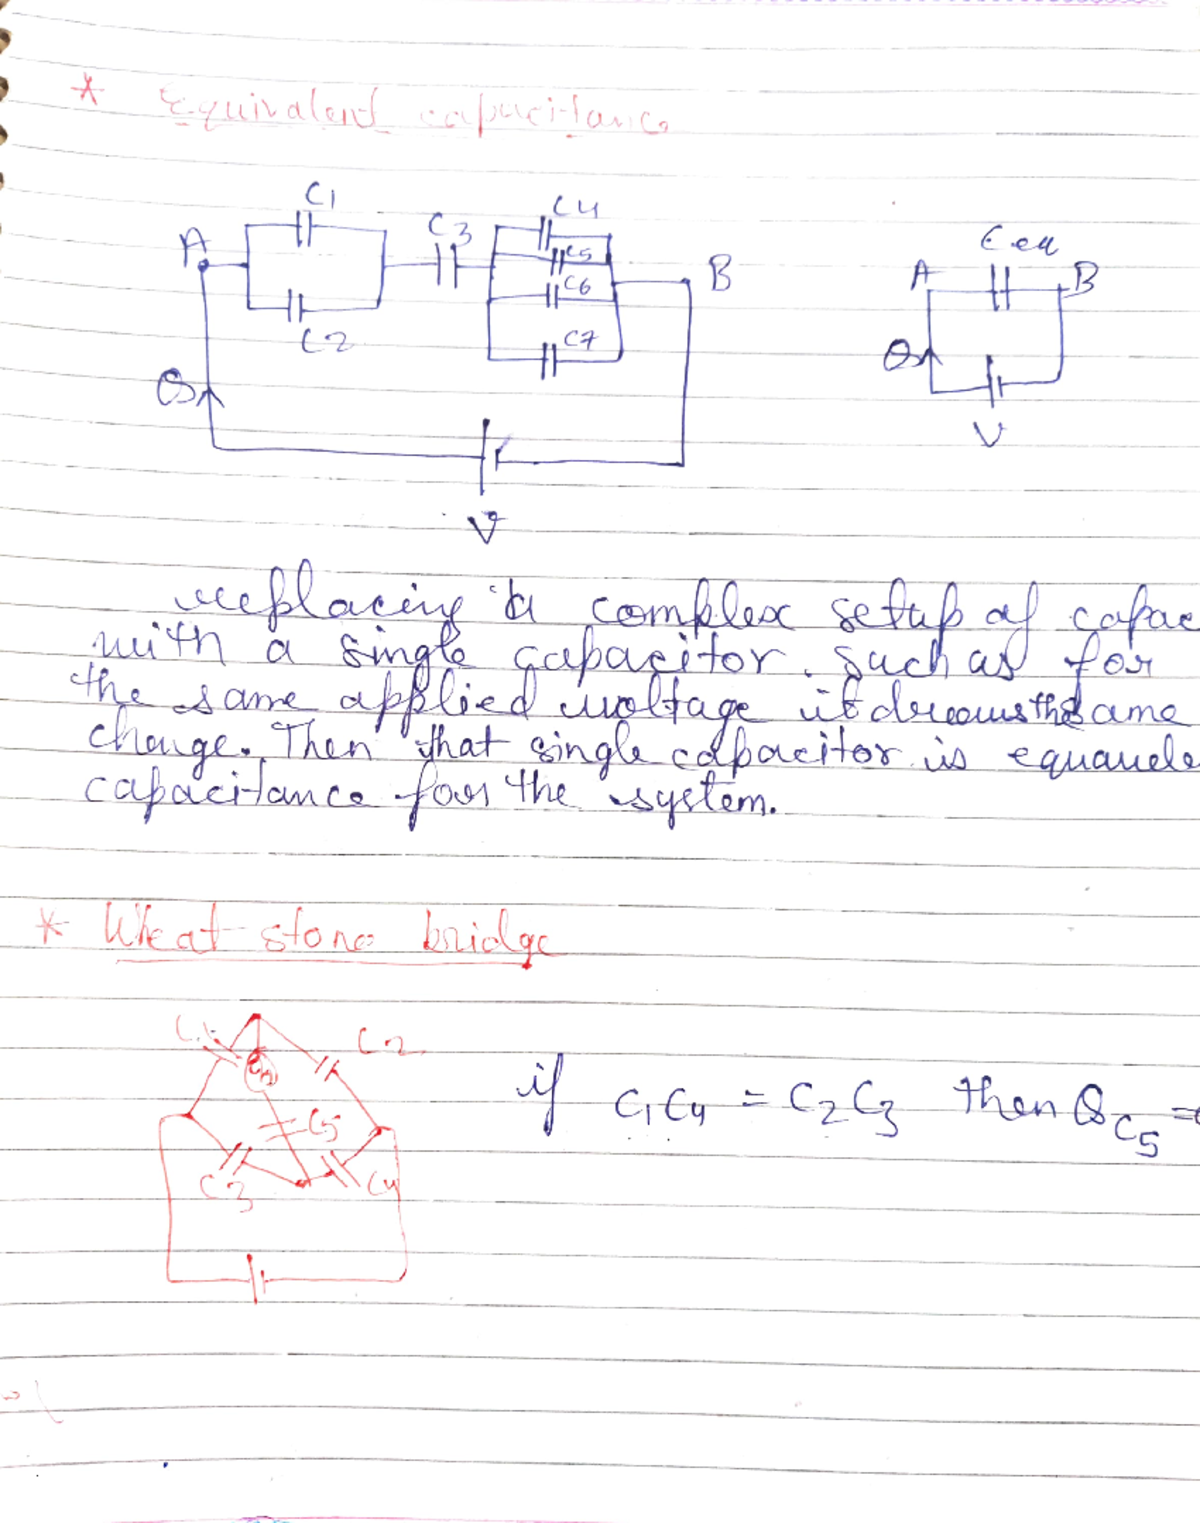 * Equivalent capacitance
C1
C4
C3
A
C5
B
C6
C2
C7
Q
V
Ceq
A
B
Q
V
replacing a complex setup of capac
with a single capacitor. Such as for
the same applied voltage it draws the same
charge. Then that single capacitor is
capacitance for the system.
* Wheat stone bridge
C1
C2
C5
C3
C4
if C1C4 = C2C3 then QC5 =